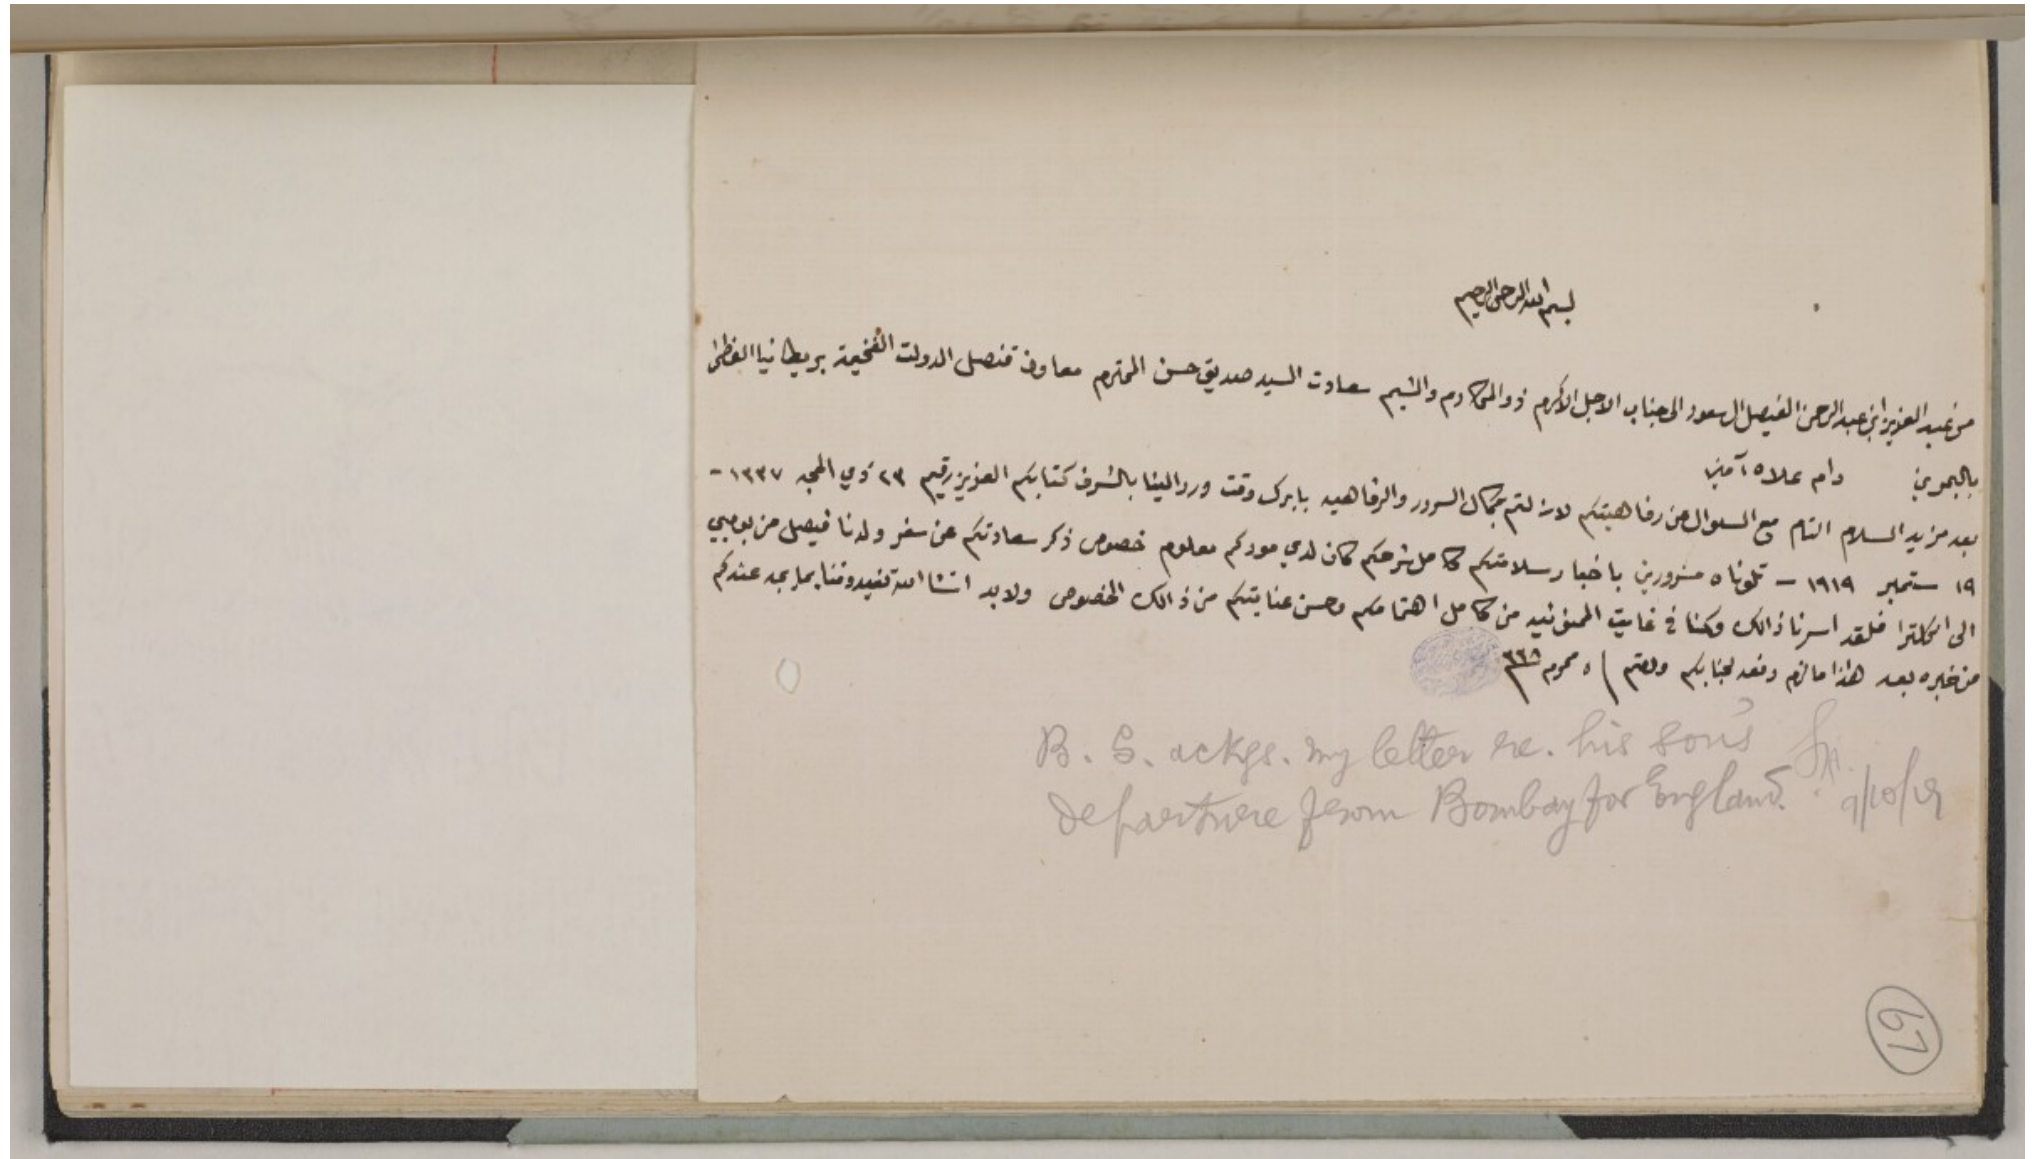 بسم الله الرحمن الرحيم
من عبد العزيز ابن عبد الرحمن الفيصل ال سعود الى جناب الاجل الاكرم ذو المكارم والشيم سعادت السيد صديق حسن المحترم معاون قنصل الدولت الفخيمة بريطانيا العظمى
بالبحرين دام علاه آمين
بعد مزيد السلام التام مع السئوال عن رفاهيتكم لازلتم بكمال السرور والرفاهيه بابرك وقت ورد الينا بالشرف كتابكم العزيز رقيم ٢٣ ذي الحجه ١٣٣٧ –
١٩ ستمبر ١٩١٩ – تلوناه مسرورين باخبار سلامتكم كامل شرحكم كان لدى مودكم معلوم خصوص ذكر سعادتكم عن سفر ولدنا فيصل من بومبي
الى انكلترا فلقد اسرنا ذالك وكنا في غايت الممنونيه من كامل اهتمامكم وحسن عنايتكم من ذالك الخصوص ولابد انشا الله تفيدوننا بما يجد عندكم
من خبره بعد هذا مالزم رفعه لجنابكم ودمتم ٥ محرم ٣٣٨
B. S. ackgs. my letter re. his son's
departure from Bombay for England.
9/10/19
67